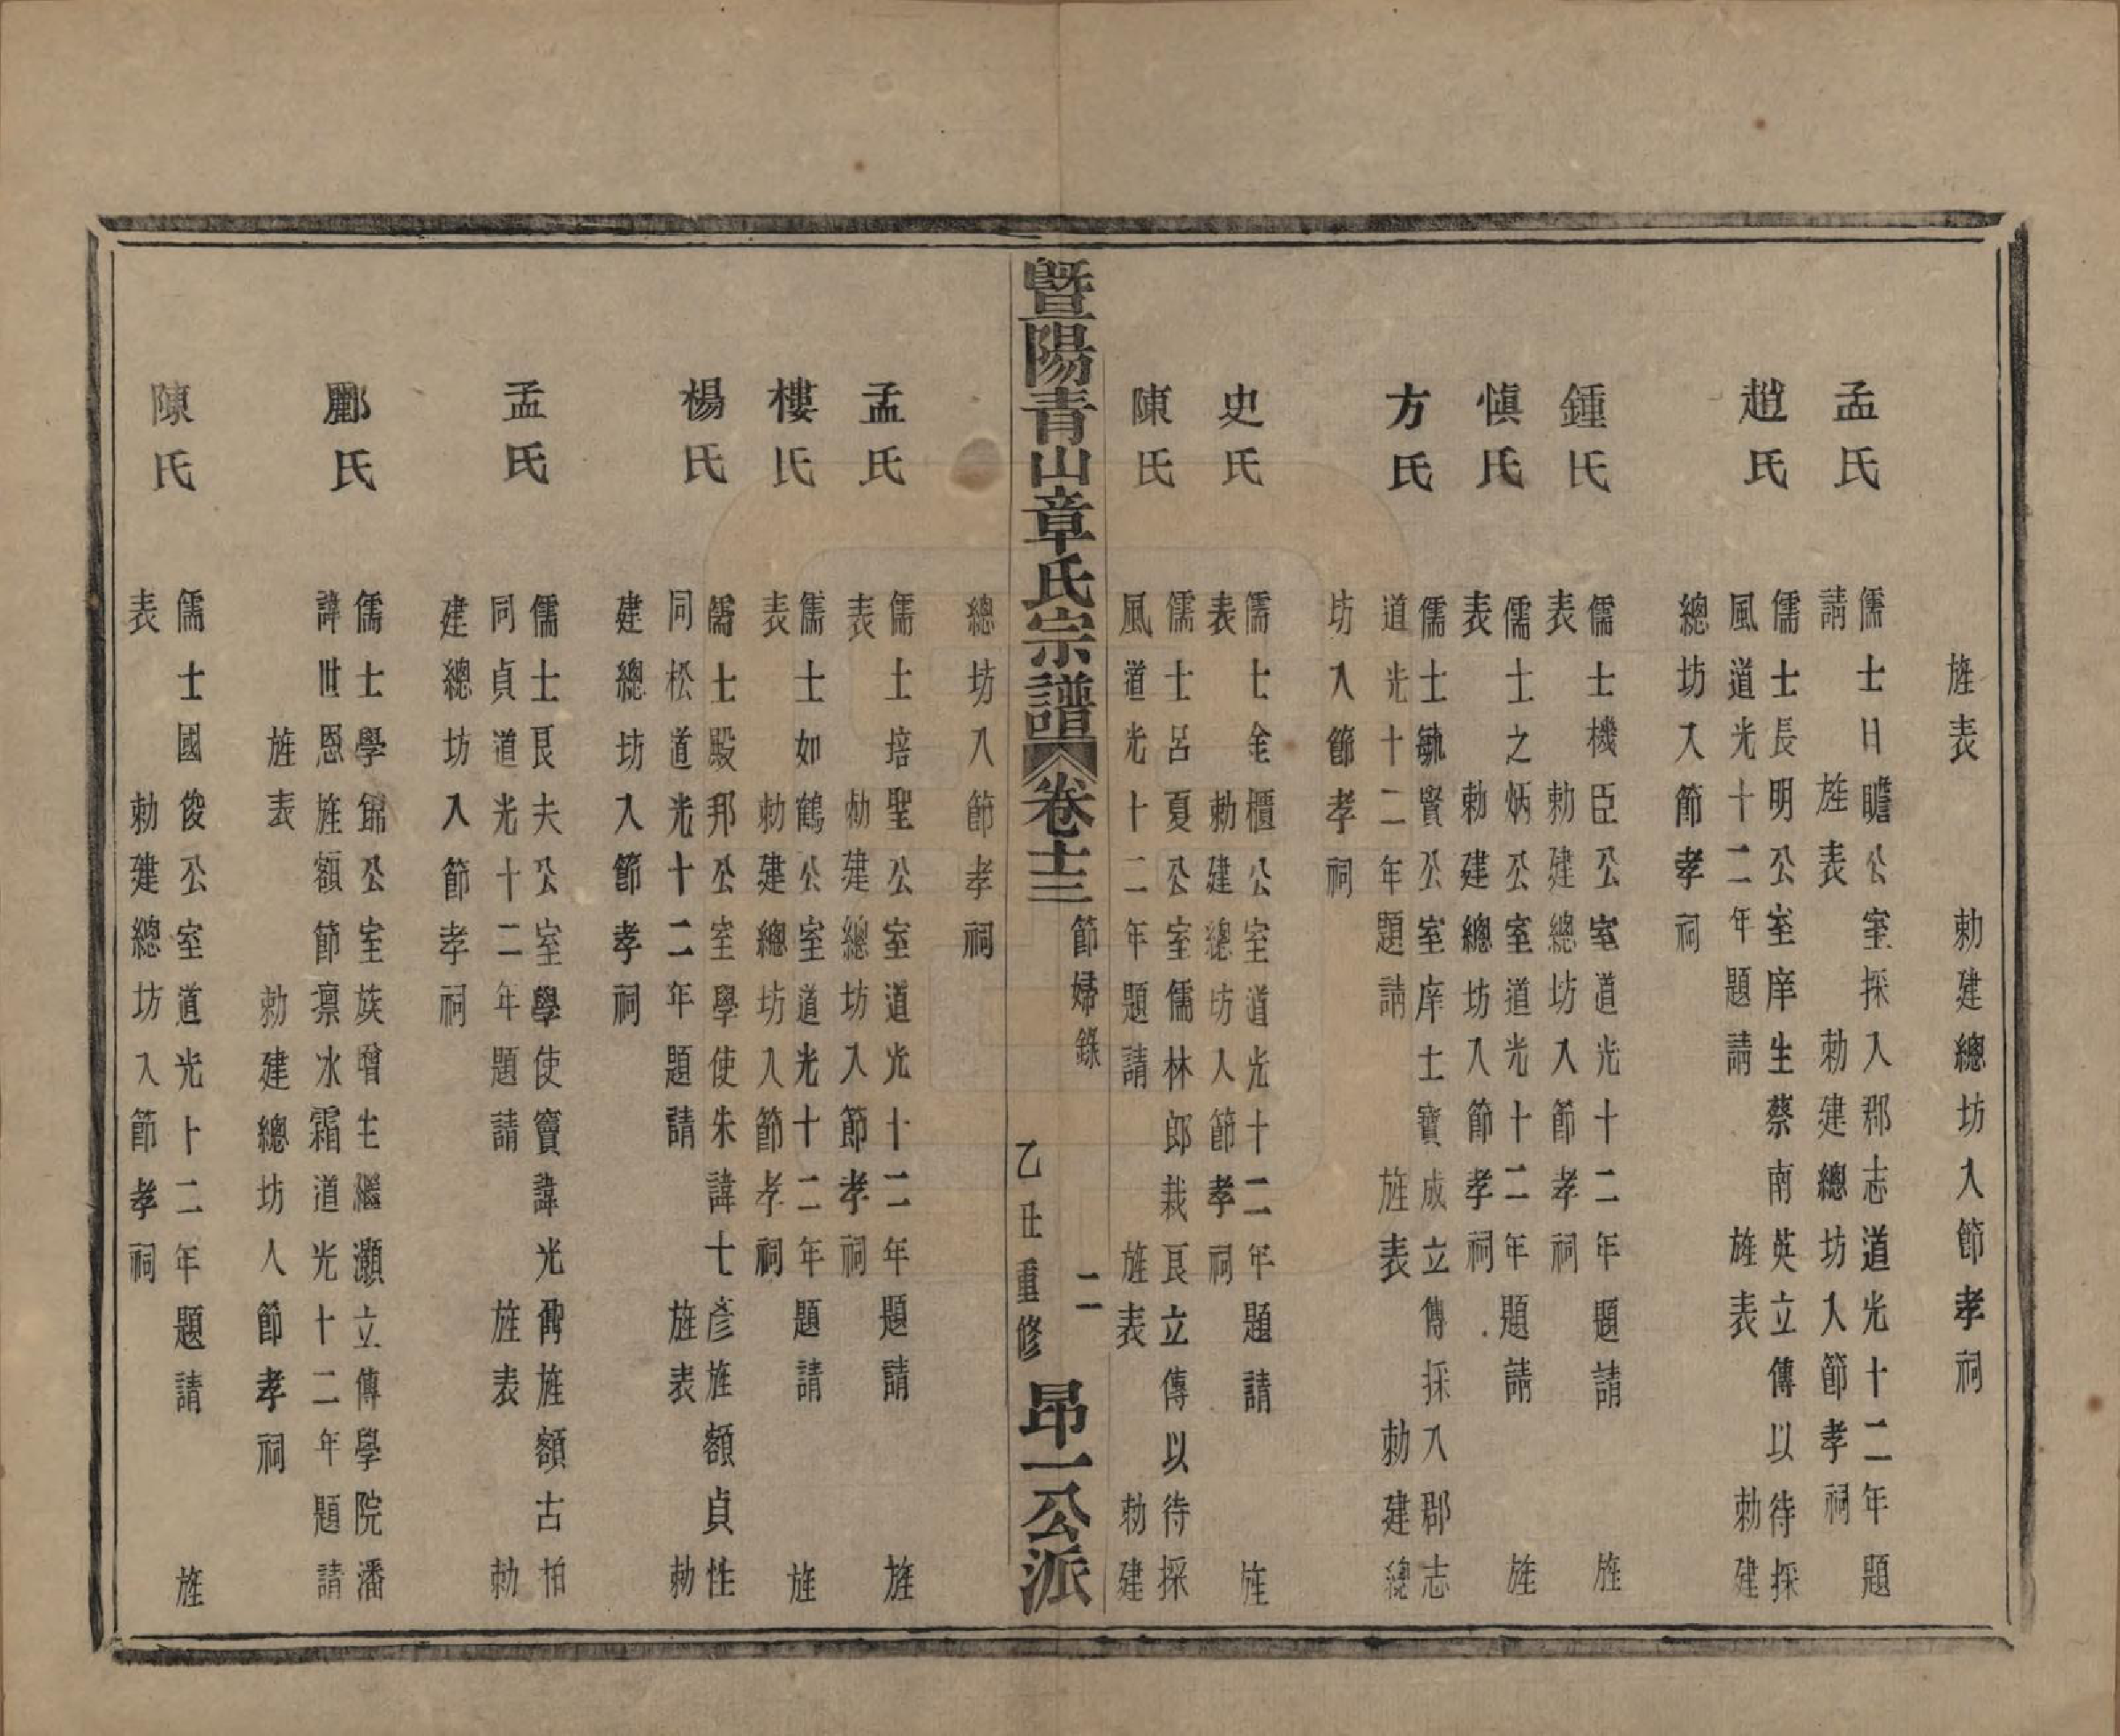 旌表　勅建總坊入節孝祠
孟氏　儒士日瞻公室採入郡志道光十二年題
請　旌表　勅建總坊入節孝祠
趙氏　儒士長明公室庠生蔡南英立傳以待採
風道光十二年題請　旌表　勅建
總坊入節孝祠
鍾氏　儒士機臣公室道光十二年題請　旌
表　勅建總坊入節孝祠
愼氏　儒士之炳公室道光十二年題請　旌
表　勅建總坊入節孝祠
方氏　儒士毓賢公室庠士寶成立傳採入郡志
道光十二年題請　旌表　勅建總
坊入節孝祠
史氏　儒士金櫃公室道光十二年題請　旌
表　勅建總坊入節孝祠
陳氏　儒士呂夏公室儒林郎栽艮立傳以待採
風道光十二年題請　旌表　勅建
暨陽青山章氏宗譜　卷十三　節婦錄　二　乙丑重修　昂一公派
總坊入節孝祠
孟氏　儒士培聖公室道光十二年題請　旌
表　勅建總坊入節孝祠
樓氏　儒士如鶴公室道光十二年題請　旌
表　勅建總坊入節孝祠
楊氏　儒士殿邦公室學使朱諱士彥旌額貞性
同松道光十二年題請　旌表　勅
建總坊入節孝祠
孟氏　儒士艮夫公室學使竇諱光鼐旌額古柏
同貞道光十二年題請　旌表　勅
建總坊入節孝祠
酈氏　儒士學錦公室族增生繼灝立傳學院潘
諱世恩旌額節凜冰霜道光十二年題請
旌表　勅建總坊入節孝祠
陳氏　儒士國俊公室道光十二年題請　旌
表　勅建總坊入節孝祠